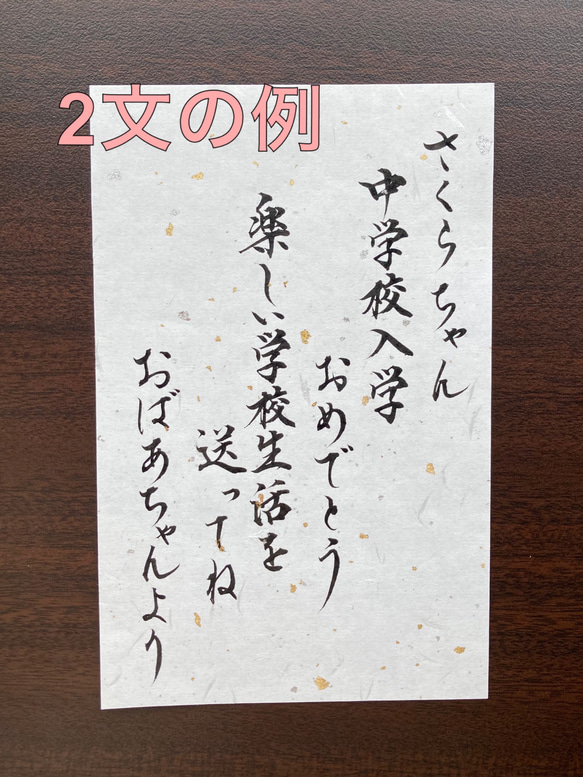 2文の例
さくらちゃん
中学校入学
おめでとう
楽しい学校生活を
送ってね
おばあちゃんより